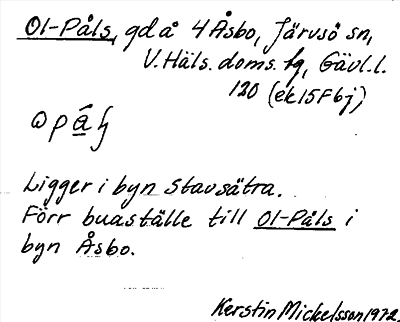 Ol-Påls, gd å 4 Åsbo, Järvsö sn,
V. Häls. doms. hg, Gävl. l.
120 (ek 15F6j)
Ligger i byn Stavsätra.
Förr buaställe till Ol-Påls i
byn Åsbo.
Kerstin Mickelsson 1972.